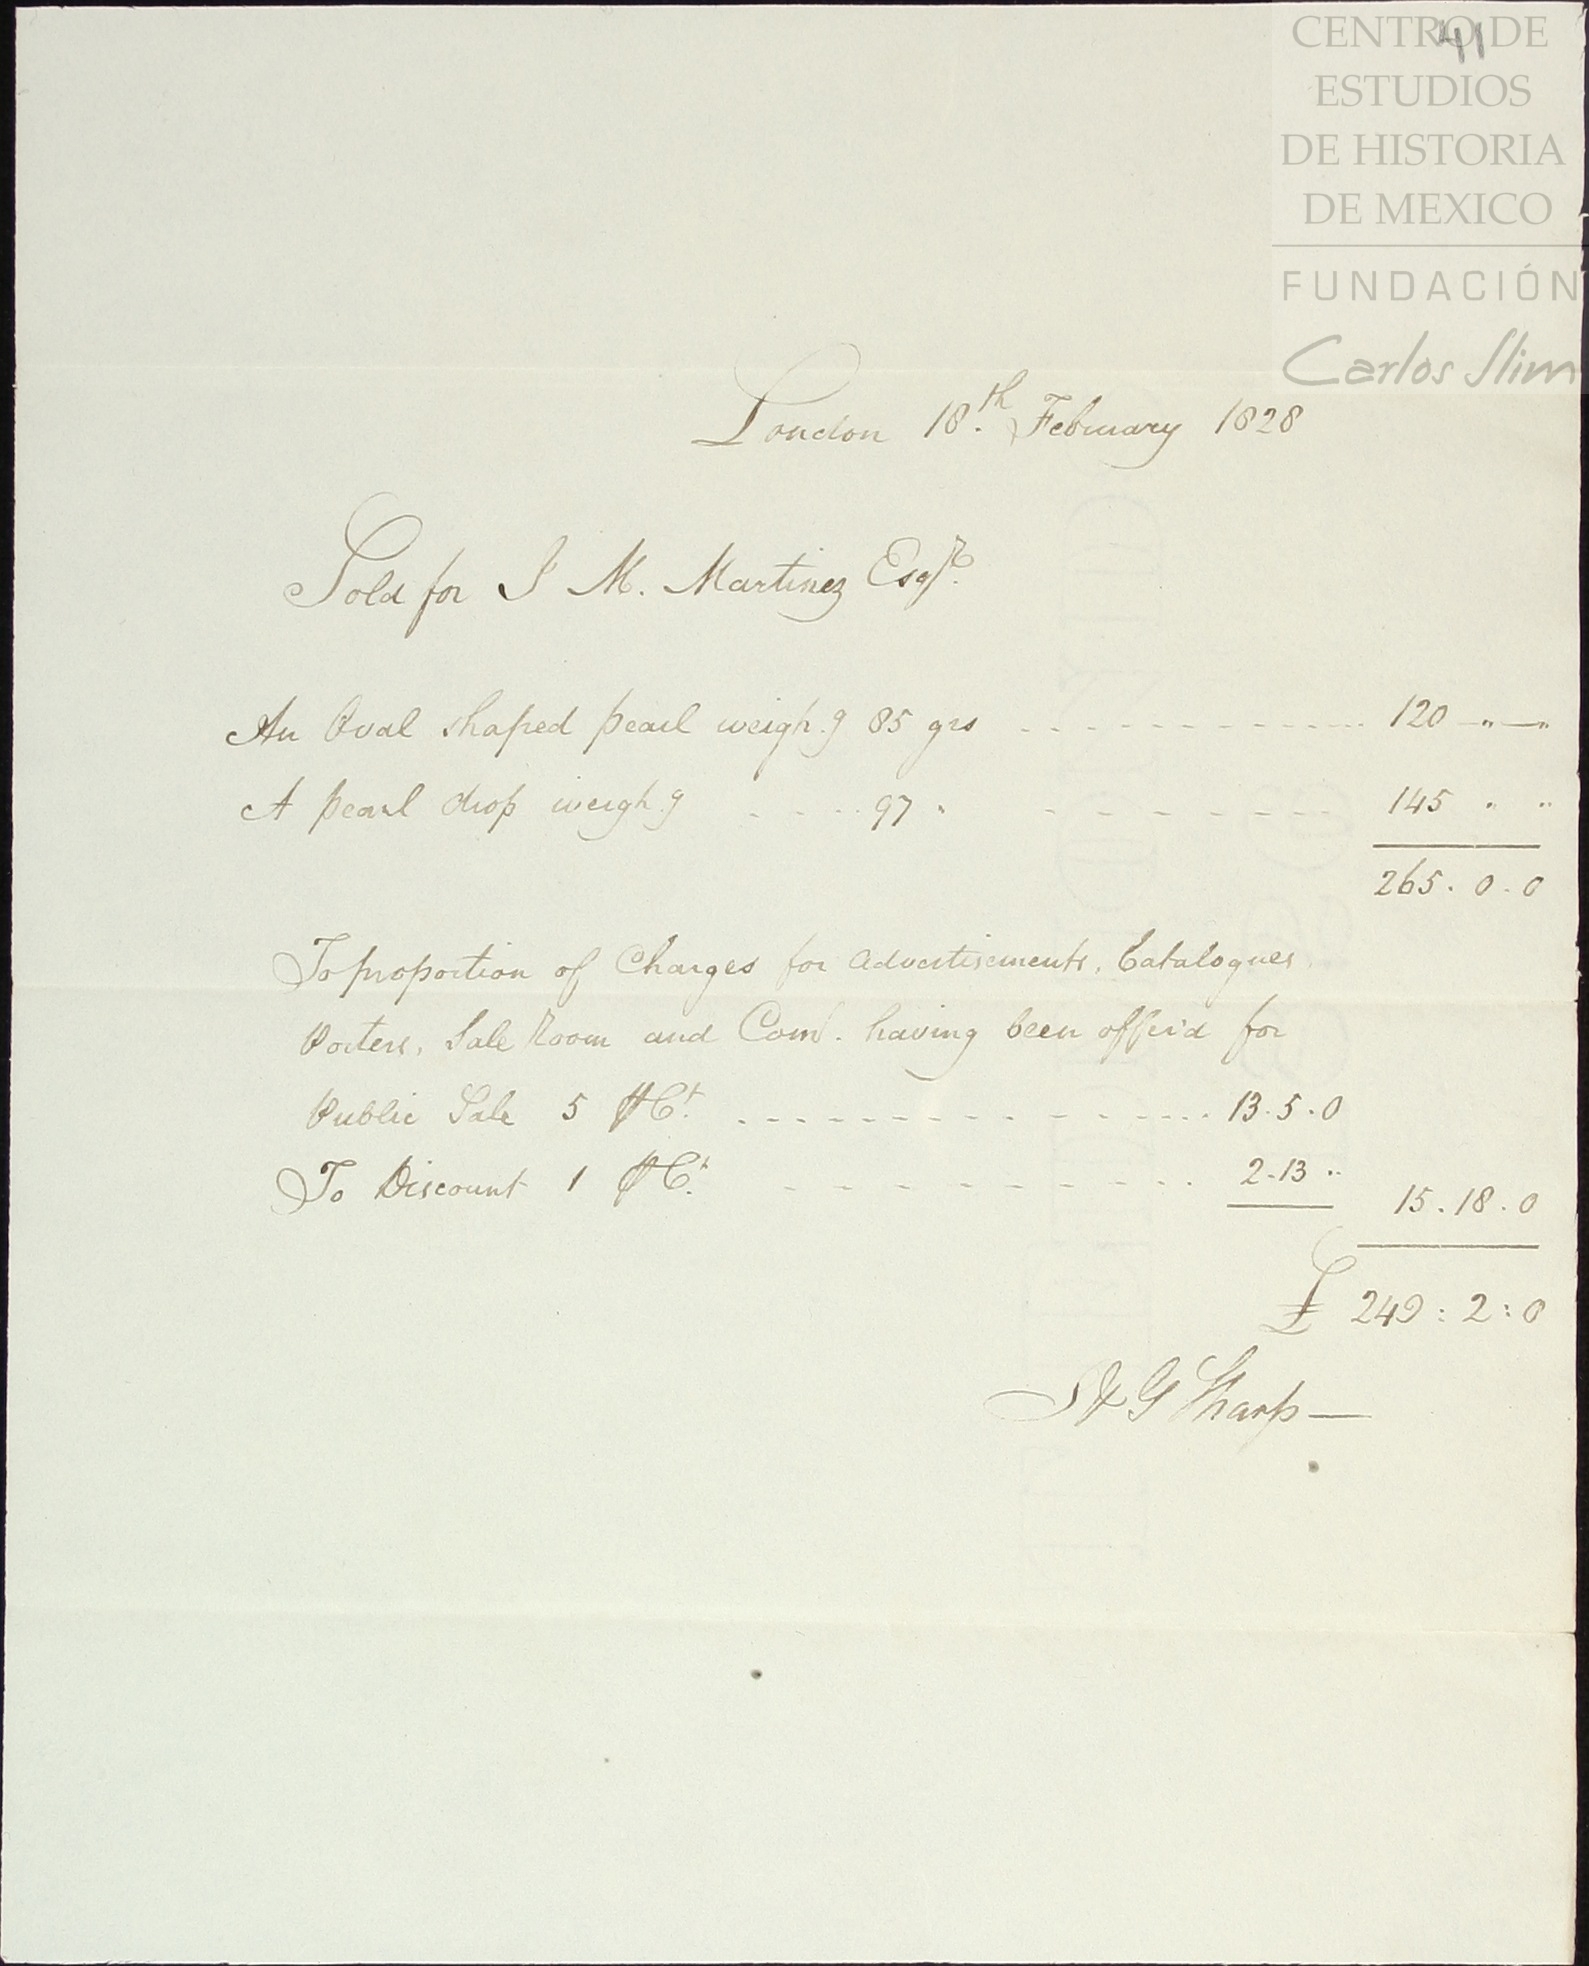 41
CENTRO DE
ESTUDIOS
DE HISTORIA
DE MEXICO
FUNDACIÓN
Carlos Slim
London 18.th February 1828
Sold for J M. Martinez Esqr.
An Oval shaped pearl weigh.g 85 grs - - - - - - - - - - 120 - " - "
A pearl drop weigh.g - - - - 97 " - - - - - - - 145 " "
265. 0. 0
To proportion of Charges for Advertisements, Catalogues,
Porters, Sale Room and Comn. having been offer'd for
Public Sale 5 ⅌ Ct. - - - - - - - - - - 13. 5. 0
To Discount 1 ⅌ Ct. - - - - - - - - - - 2. 13 "
15. 18. 0
£ 249 : 2 : 0
J & G Sharp